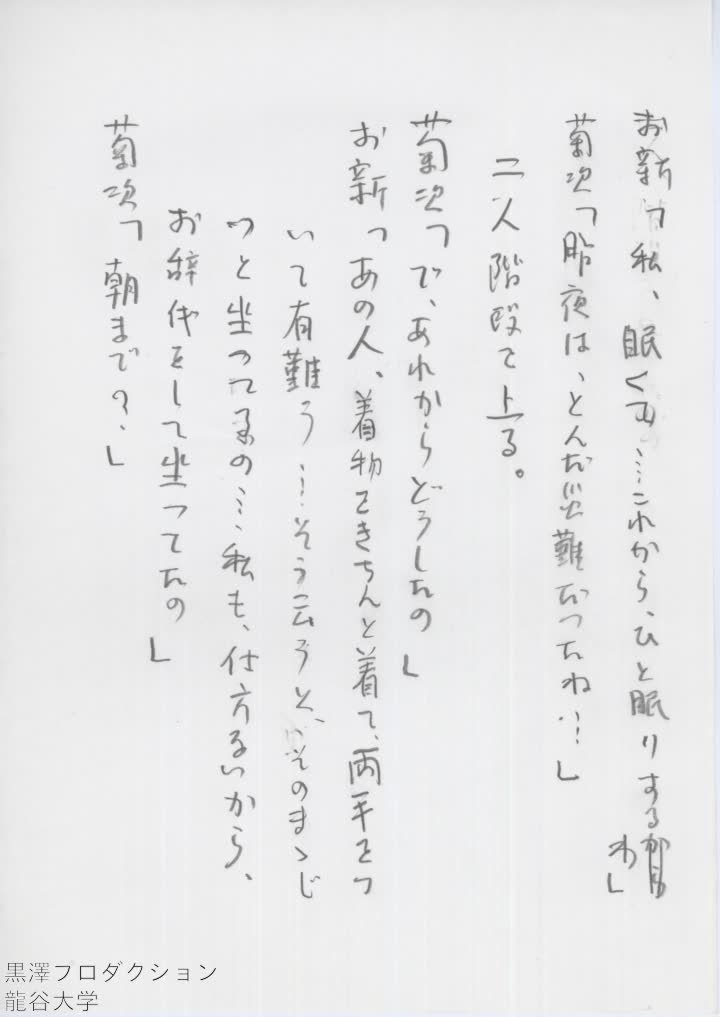 お新「私、眠くて…これから、ひと眠りする
わ」
菊次「昨夜は、とんだ災難だったね…」
二人階段を上る。
菊次「で、あれからどうしたの」
お新「あの人、着物をきちんと着て、両手をつ
いて有難う…そう云うと、そのまゝじ
っと坐ってるの…、私も、仕方ないから、
お辞儀をして坐ってたの」
菊次「朝まで？、」
黒澤プロダクション
龍谷大学